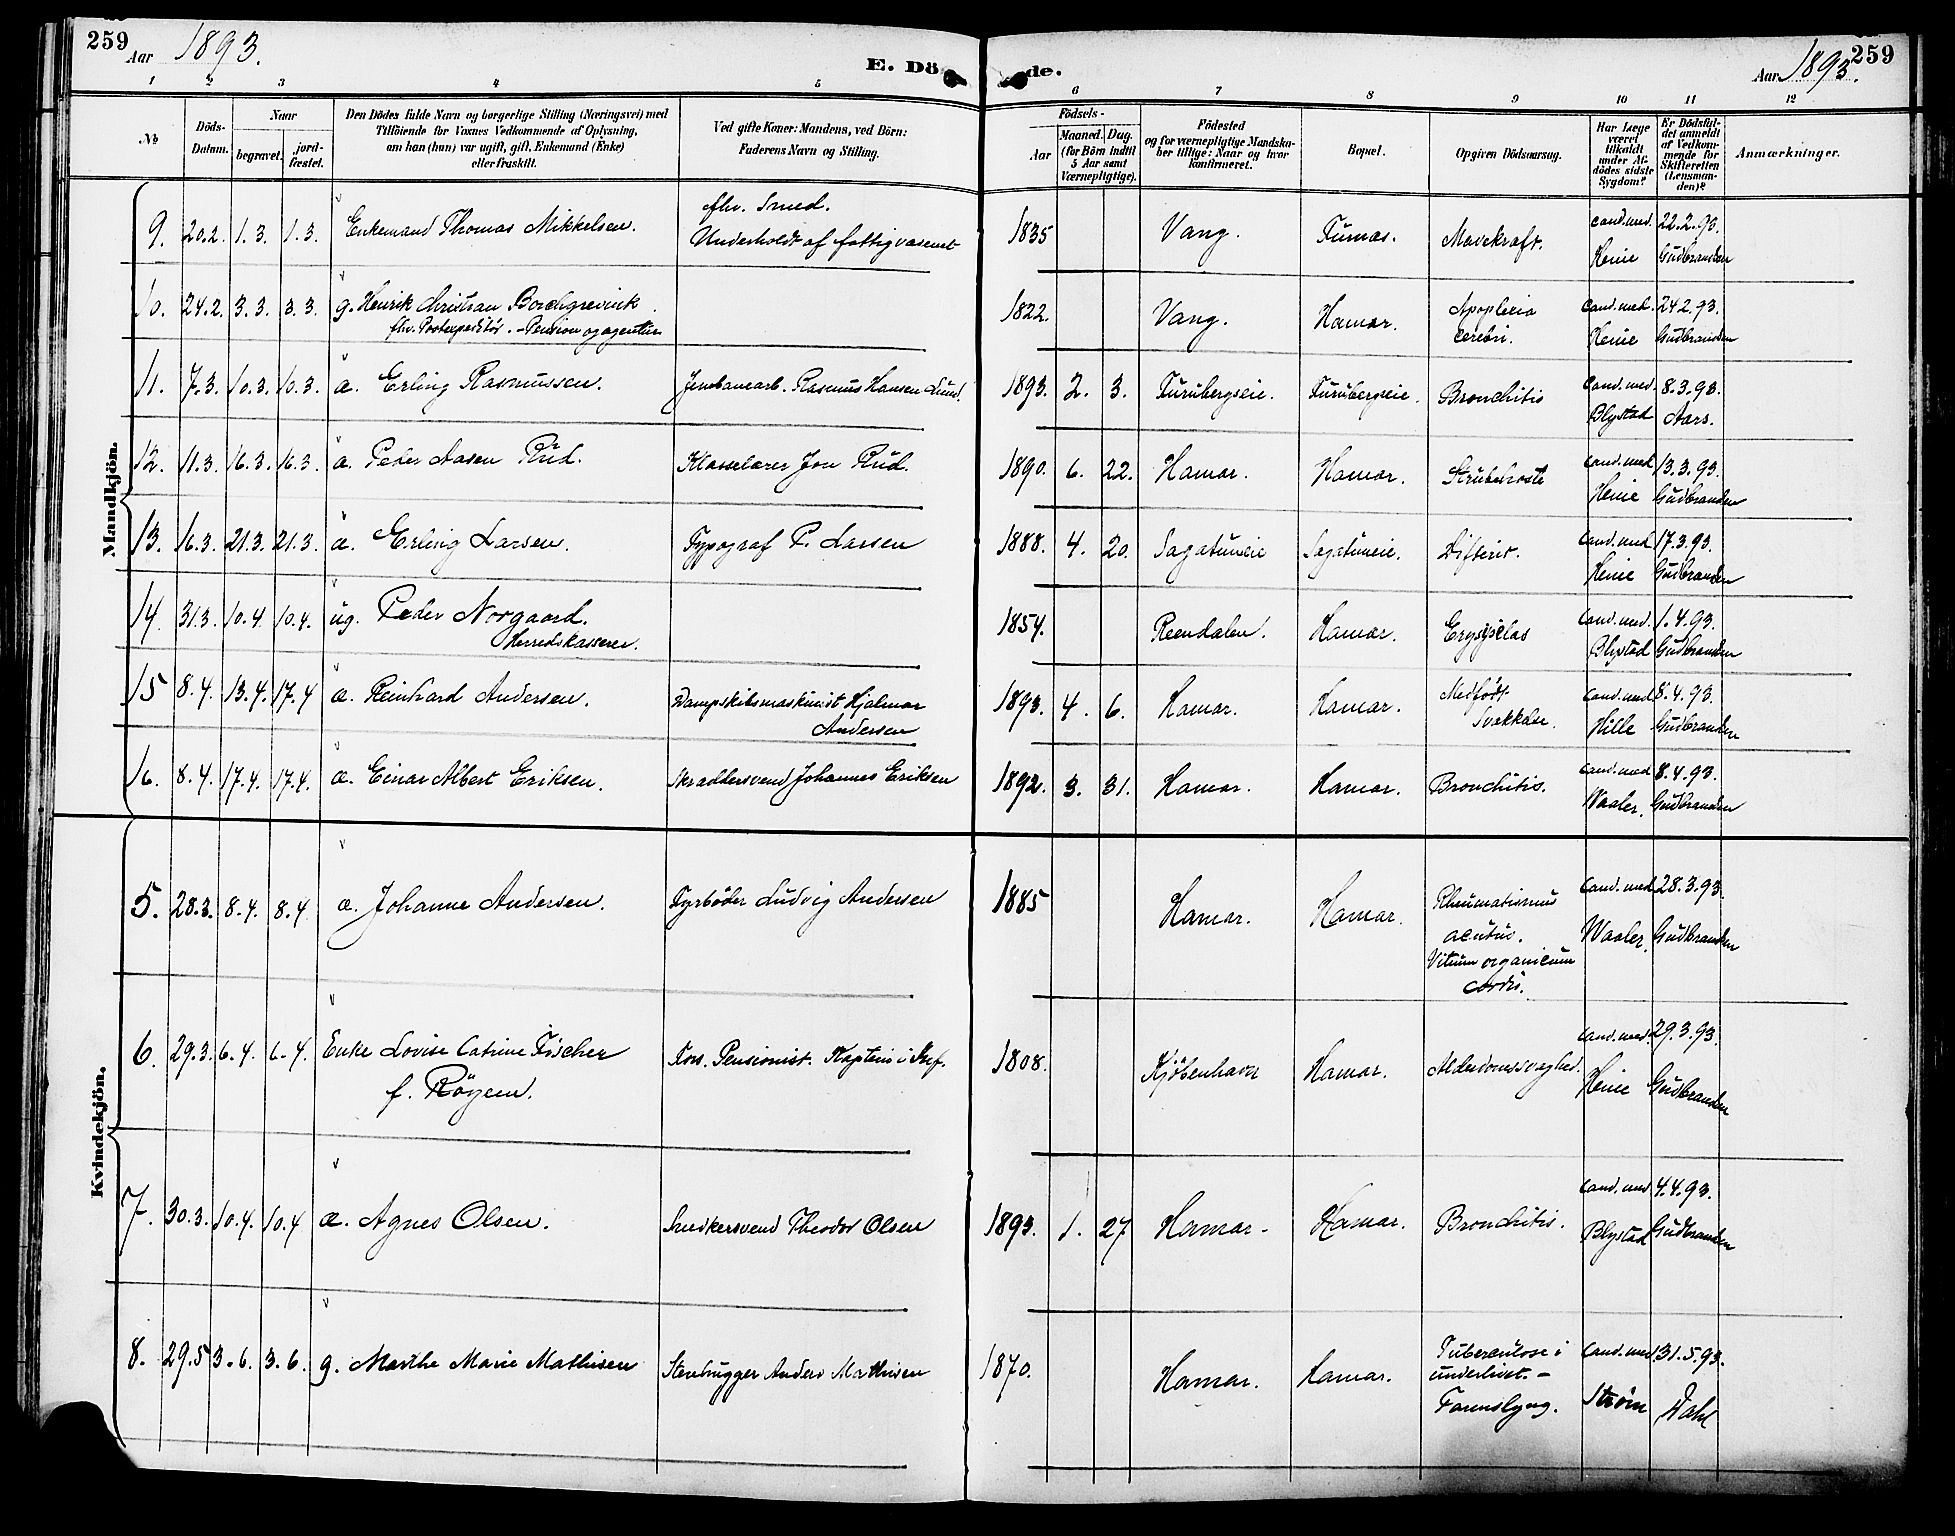 259 Aar 1893.
E. Dö de.
Aar 1893. 259
1 2 3 4 5 6 7 8 9 10 11 12
№
Döds-Datum.
Naar
begravet.
jordfæstet.
Den Dödes fulde Navn og borgerlige Stilling (Næringsvei) med
Tilföiende for Voxnes Vedkommende af Oplysning,
om han (hun) var ugift, gift, Enkemand (Enke)
eller fraskilt.
Ved gifte Koner: Mandens, ved Börn:
Faderens Navn og Stilling.
Födsels-
Aar
Maaned. Dag.
(for Börn indtil
5 Aar samt
Værnepligtige).
Födested
og for værnepligtige Mandska-
ber tillige: Naar og hvor
konfirmeret.
Bopæl.
Opgiven Dödsaarsag.
Har Læge
været
tilkaldt
under Af-
dödes sidste
Sygdom?
Er Dödsfal-
det anmeldt
af Vedkom-
mende for
Skifteretten
(Lensman-
den)?
Anmærkninger.
Mandkjön.
9. 20.2. 1.3. 1.3. Enkemand Thomas Mikkelsen. fhv. Smed. 1835 Vang. Furnas. Mavekræft. cand.med. 22.2.93.
Underholdt af fattigvæsenet Heine Gudbranden
10. 24.2. 3.3. 3.3. g. Henrik Christian Borchgrevink. 1822. Vang. Hamar. Apoplexia cand.med. 24.2.93.
fhv. Postexpeditör. - Pension og agentur cerebri. Heine Gudbranden
11. 7.3. 10.3. 10.3. a. Erling Rasmussen. Jernbanearb. Rasmus Hansen Lund. 1893. 2. 3. Furubergseie. Furubergseie. Bronchitis cand.med. 8.3.93.
Blystad Aars.
12. 11.3. 16.3. 16.3. a. Peder Aasen Rud. Klasselærer Jon Rud. 1890. 6. 22. Hamar. Hamar. Strubehoste cand.med. 13.3.93.
Heine Gudbranden
13. 16.3. 21.3. 21.3. a. Erling Larsen. Typograf P. Larsen 1888. 4. 20. Sagatuneie Sagatuneie. Difterit. cand.med. 17.3.93.
Heine Gudbranden
14. 31.3. 10.4. 10.4. ug. Peder Norgaard. 1854. Reendalen. Hamar. Erysipelas cand.med. 1.4.93.
Herredskasserer. Blystad Gudbranden
15 8.4. 13.4. 17.4 a. Reinhard Andersen. Dampskibsmaskinist Hjalmar 1893. 4. 6. Hamar. Hamar. Medfødt cand.med. 8.4.93.
Andersen Svækkelse. Hille Gudbranden
16. 8.4. 17.4. 17.4. a. Einar Albert Eriksen. Skræddersvend Johannes Eriksen 1892. 3. 31. Hamar. Hamar. Bronchitis. cand.med 8.4.93.
Waaler. Gudbranden
Kvindekjön.
5. 28.3. 8.4. 8.4. a. Johanne Andersen. Fyrbøder Ludvig Andersen 1885 Hamar. Hamar. Rheumatismus cand.med 28.3.93.
acutus. Waaler. Gudbranden
Vitium organicum
cordis.
6. 29.3. 6.4. 6.4. Enke Lovise Catrine Fischer Fors. Pensionist. Kaptein i Inf. 1808. Kjøbenhavn Hamar. Alderdomssvaghed. cand.med. 29.3.93.
f. Röyem. Heine Gudbranden
7. 30.3. 10.4. 10.4 a. Agnes Olsen. Snedkersvend Theodor Olsen 1893. 1. 27 Hamar. Hamar. Bronchitis. cand.med 4.4.93.
Blystad Gudbranden
8. 29.5 3.6. 3.6. g. Marthe Marie Mathisen Stenhugger Anders Mathisen 1870. Hamar. Hamar. Tuberculose i cand.med 31.5.93.
underlivet. -
Strøm Dahl